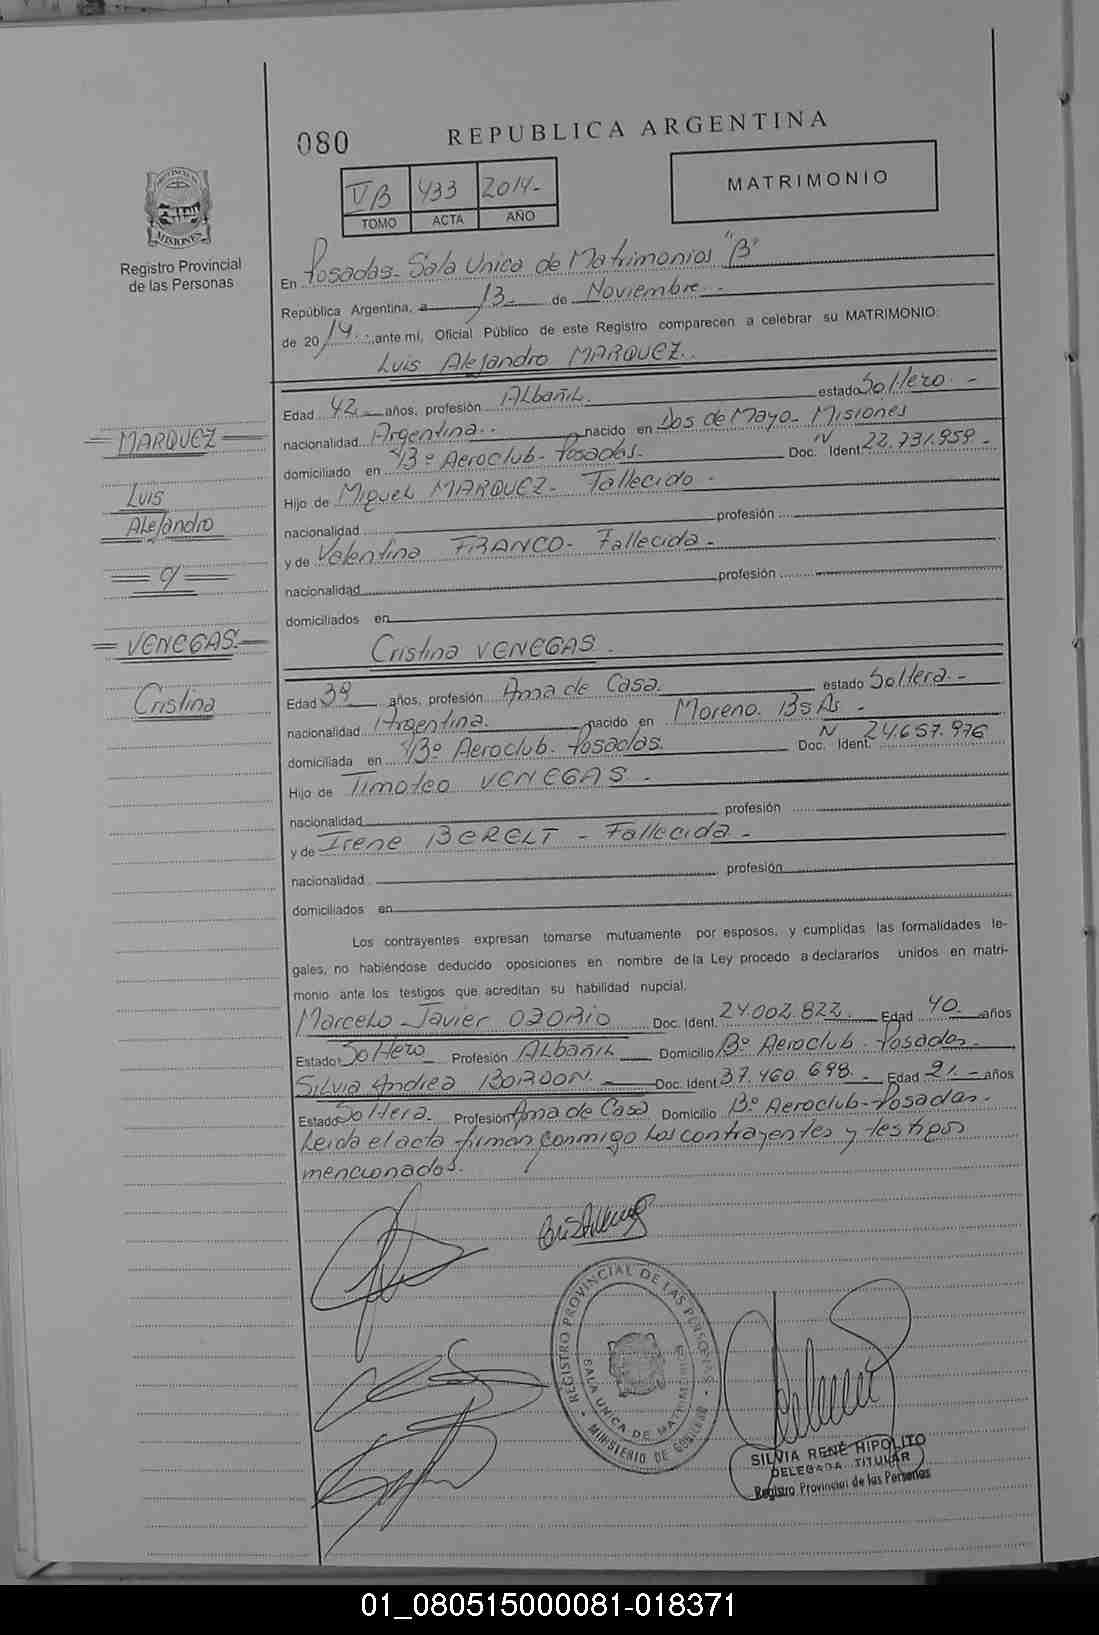 080
REPUBLICA ARGENTINA
VB 433 2014-
TOMO ACTA AÑO
MATRIMONIO
PROVINCIA DE MISIONES
Registro Provincial
de las Personas
En Posadas- Sala Unica de Matrimonios "B"
República Argentina, a 13- de Noviembre -
de 20 14.- ante mi, Oficial Público de este Registro comparecen a celebrar su MATRIMONIO:
Luis Alejandro MARQUEZ.
Edad 42 años, profesión ALbañiL. estado SoLtero. -
nacionalidad Argentina.. nacido en Dos de Mayo. Misiones
domiciliado en Bº Aeroclub- Posadas. Doc. Ident. N 22.731.959 -
Hijo de MigueL MARQUEZ- Fallecido -
nacionalidad profesión
y de Valentina FRANCO- Fallecida -
nacionalidad profesión
domiciliados en
Cristina VENEGAS.
Edad 39 años, profesión Ama de Casa. estado Soltera. -
nacionalidad Argentina. nacido en Moreno. Bs As -
domiciliada en Bº Aeroclub. Posadas. Doc. Ident. N 24.657.976
Hijo de Timoteo VENEGAS -
nacionalidad profesión
y de Irene BERELT - Fallecida -
nacionalidad profesión
domiciliados en
Los contrayentes expresan tomarse mutuamente por esposos, y cumplidas las formalidades le-
gales, no habiéndose deducido oposiciones en nombre de la Ley procedo a declararlos unidos en matri-
monio ante los testigos que acreditan su habilidad nupcial.
Marcelo Javier OZORIO Doc. Ident. 24.002.822. Edad 40. años
Estado SoLtero Profesión ALbañiL Domicilio Bº Aeroclub - Posadas.
SiLvia Andrea BORDON. Doc. Ident 37.460.698. Edad 21.- años
Estado Soltera. Profesión Ama de Casa Domicilio Bº Aeroclub- Posadas.
Leida el acta firman conmigo Los contrayentes y testigos
mencionados.
MARQUEZ
Luis
Alejandro
c/
VENEGAS.
Cristina
REGISTRO PROVINCIAL DE LAS PERSONAS
SALA UNICA DE MATRIMONIOS
MINISTERIO DE GOBIERNO
SILVIA RENÉ HIPOLITO
DELEGADA TITULAR
Registro Provincial de las Personas
01_080515000081-018371